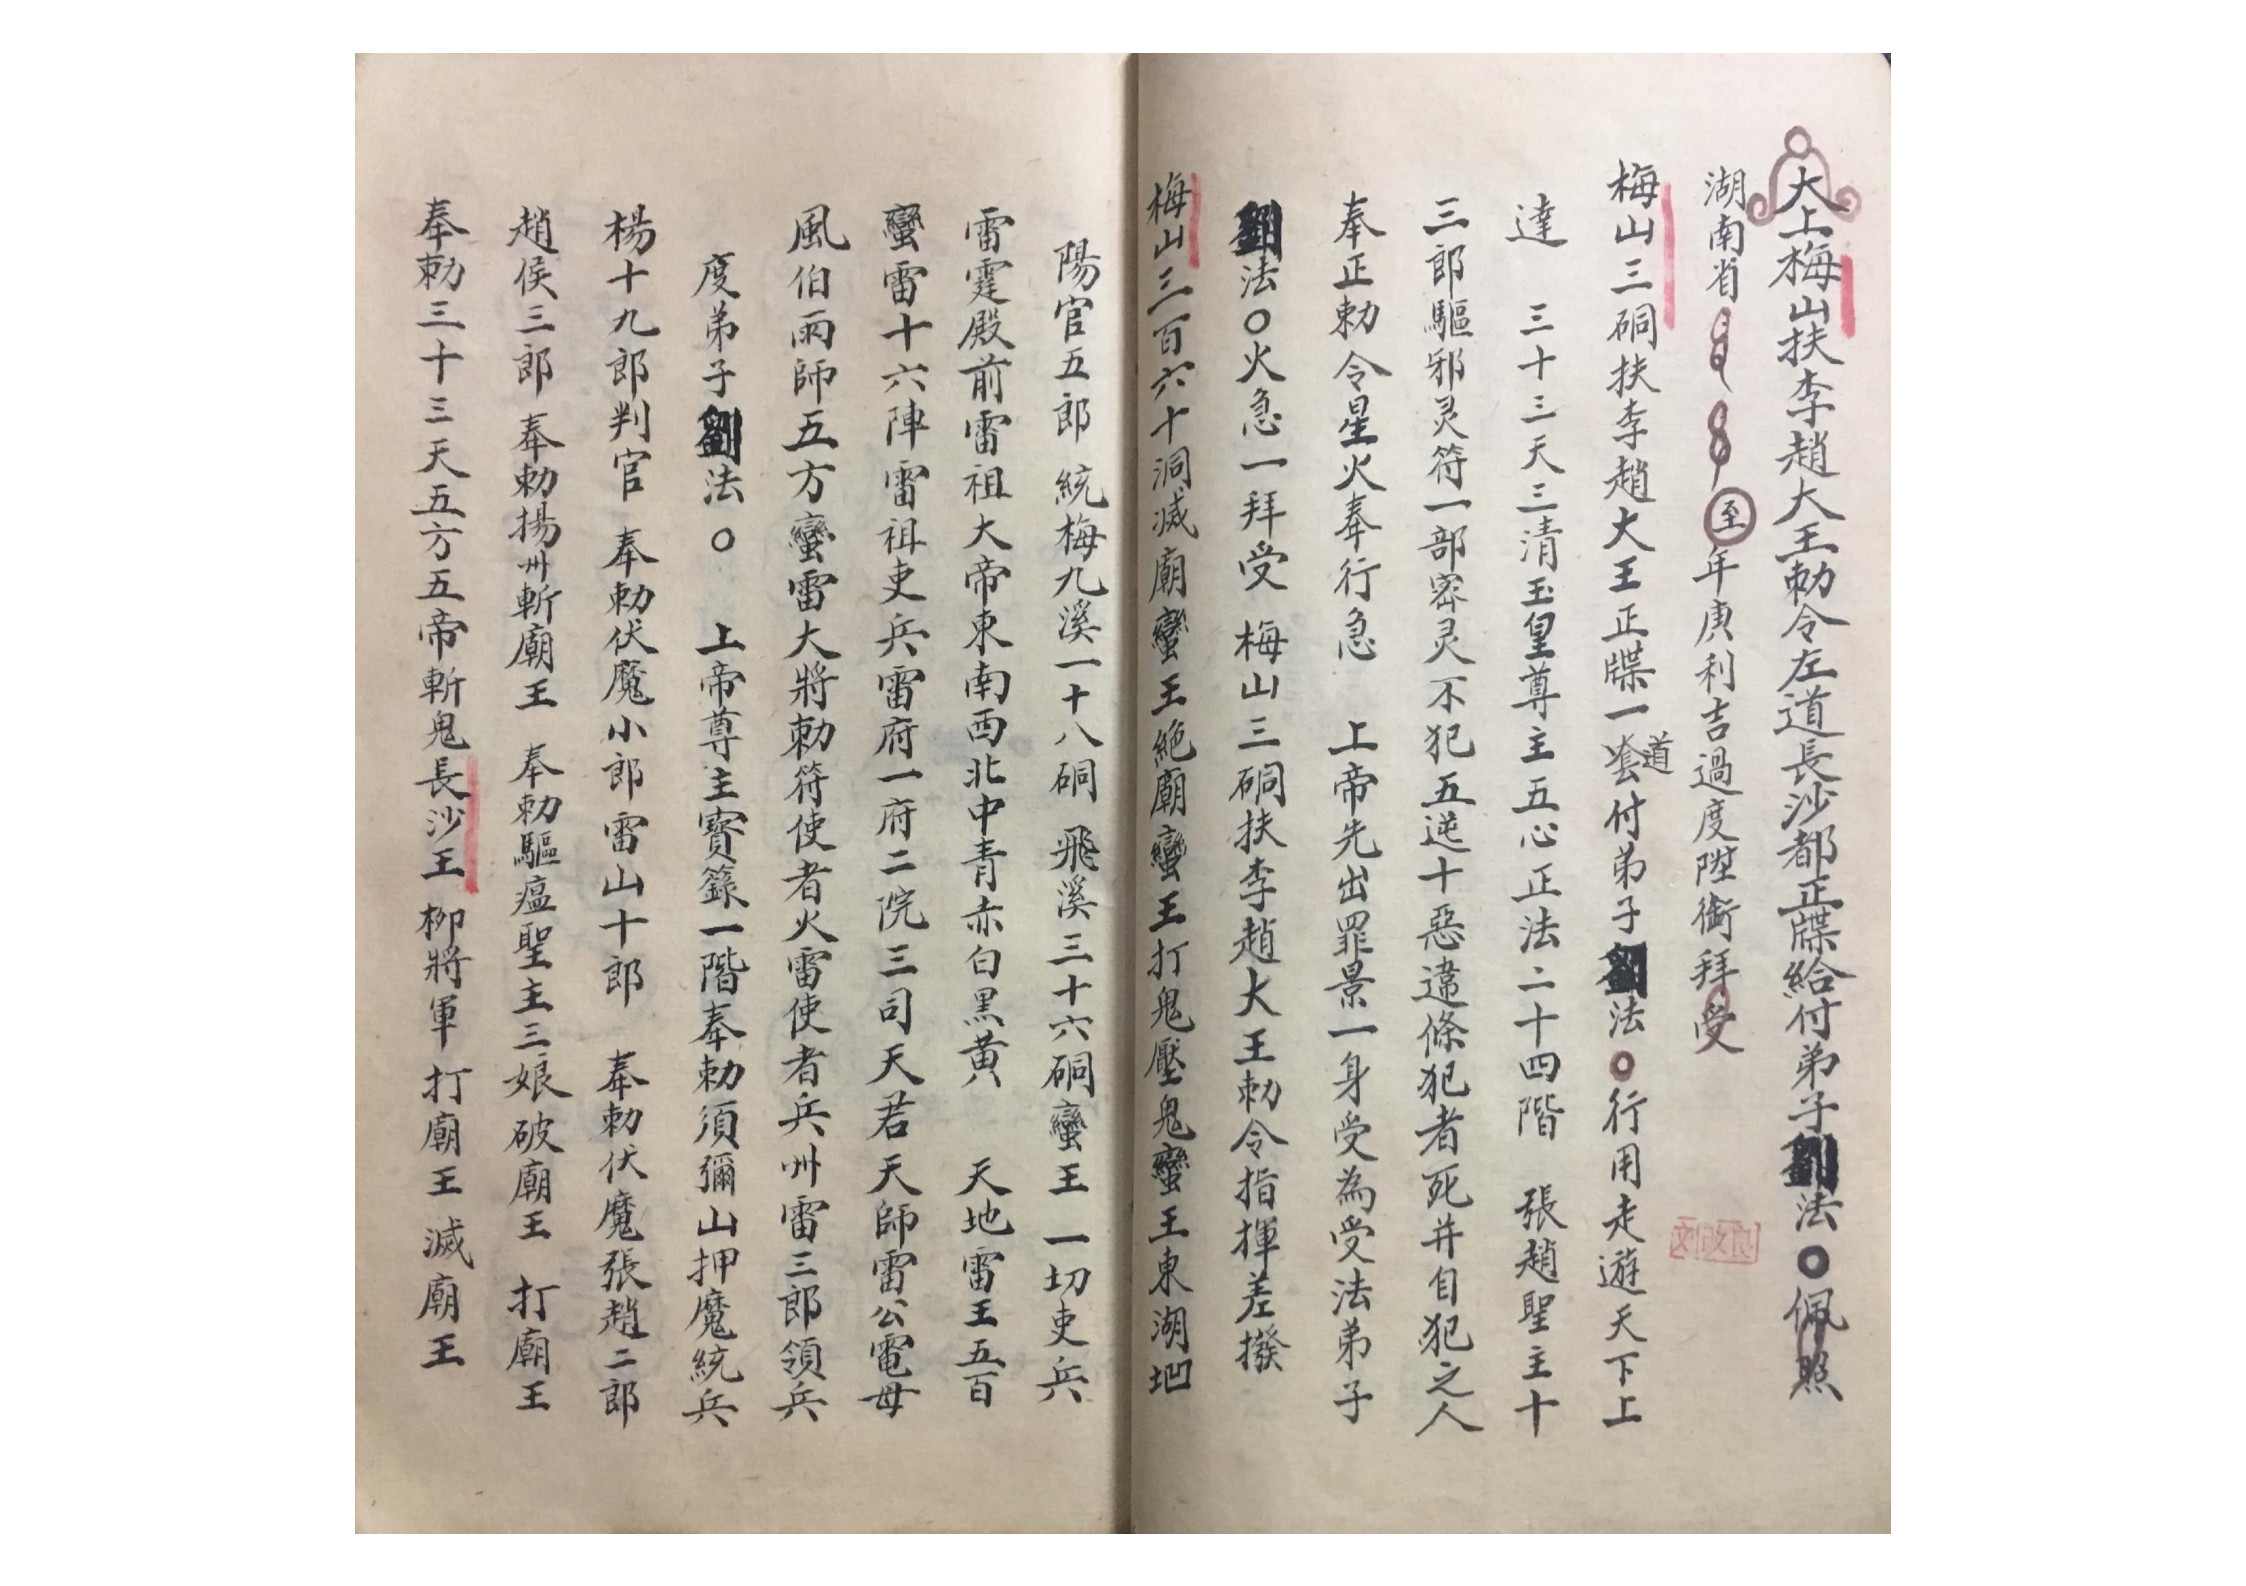 太上梅山扶李趙大王勅令左道長沙都正牒給付弟子劉法〇佩照
湖南省至年庚利吉過度陞銜拜受
梅山三硐扶李趙大王正牒一道套付弟子劉法〇行用走遊天下上
達 三十三天三清玉皇尊主五心正法二十四階 張趙聖主十
三郎驅邪灵符一部密灵不犯五逆十惡違條犯者死并自犯之人
奉正勅令星火奉行急 上帝先出罪景一身受為受法弟子
劉法〇火急一拜受 梅山三硐扶李趙大王勅令指揮差撥
梅山三百六十洞滅廟蠻王絶廟蠻王打鬼壓鬼蠻王東湖地
陽官五郎 統梅九溪一十八硐 飛溪三十六硐蠻王一切吏兵
雷霆殿前雷祖大帝東南西北中青赤白黑黄 天地雷王五百
蠻雷十六陣雷祖吏兵雷府一府二院三司天君天師雷公電母
風伯雨師五方蠻雷大將勅符使者火雷使者兵州雷三郎領兵
度弟子劉法〇 上帝尊主寳籙一階奉勅須彌山押魔統兵
楊十九郎判官 奉勅伏魔小郎雷山十郎 奉勅伏魔張趙二郎
趙侯三郎 奉勅揚州斬廟王 奉勅驅瘟聖主三娘破廟王 打廟王
奉勅三十三天五方五帝斬鬼長沙王 柳將軍 打廟王滅廟王